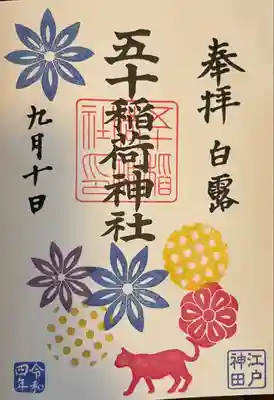 奉拝 白露
五十稲荷神社
九月十日
江戸
神田
令和
四年